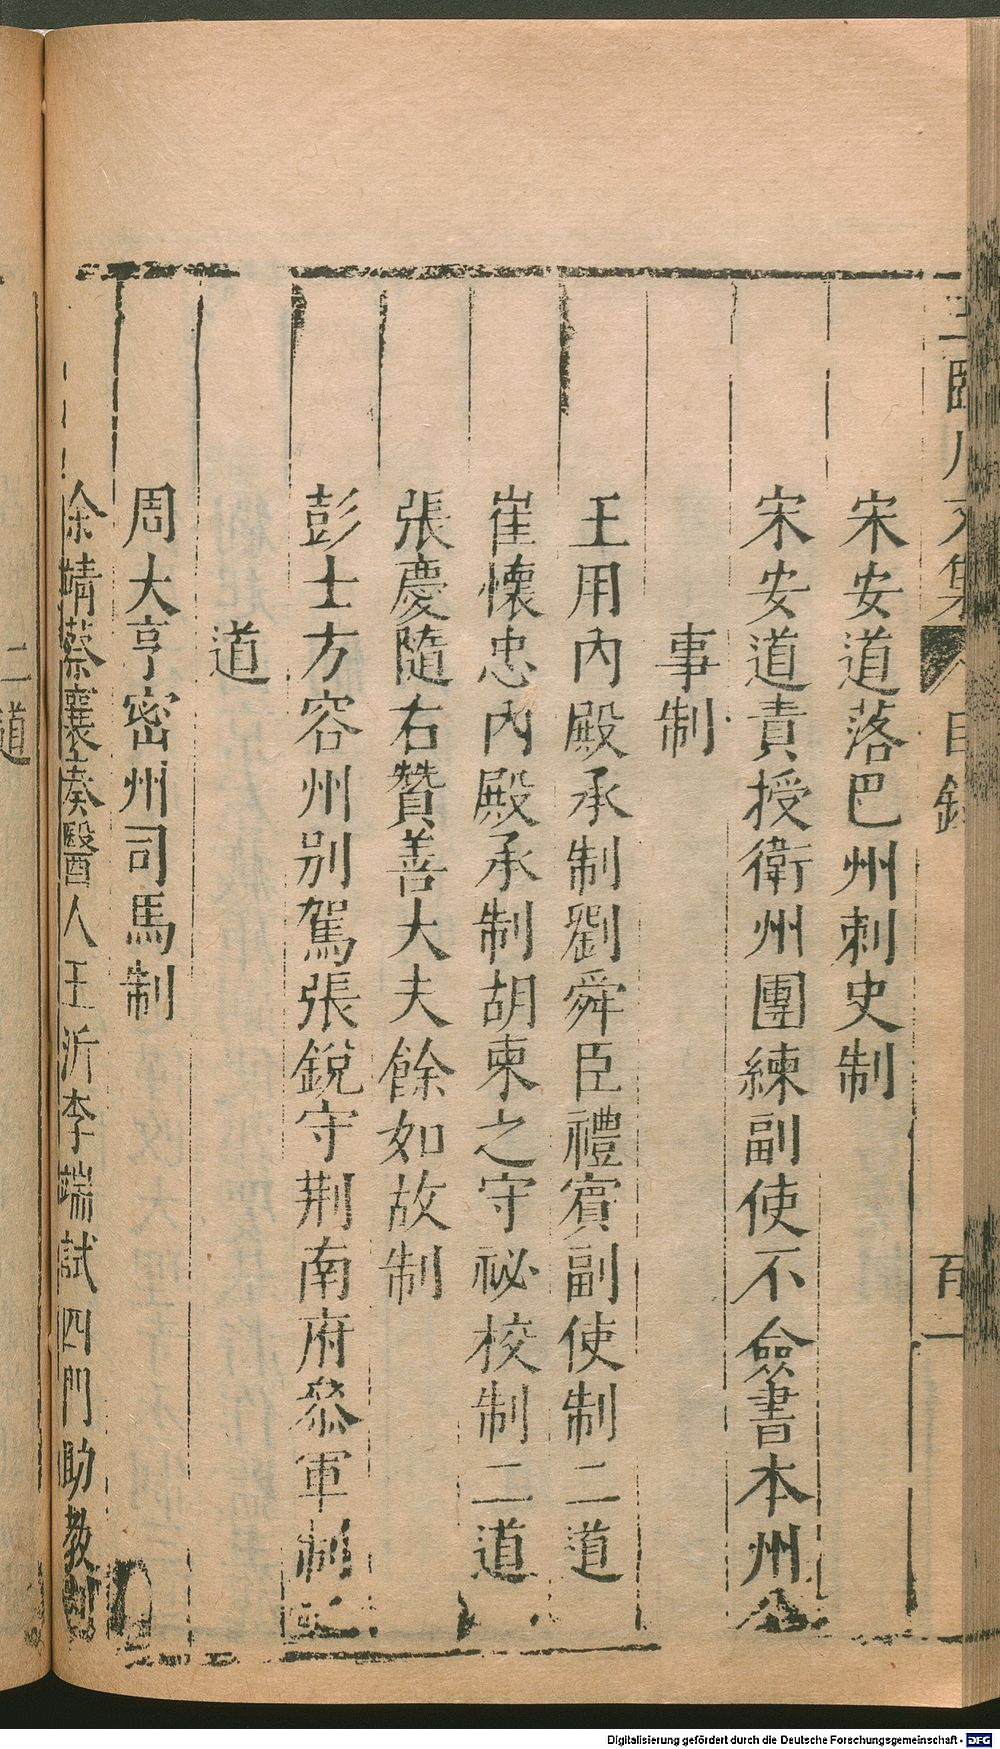 王臨川文集 目錄 百一
宋安道落巴州刺史制
宋安道責授衛州團練副使不僉書本州公
事制
王用內殿承制劉舜臣禮賓副使制二道
崔懷忠內殿承制胡柬之守祕校制二道
張慶隨右贊善大夫餘如故制
彭士方容州別駕張銳守荆南府叅軍制二
道
周大亨密州司馬制
余靖蔡襄奏醫人王沂李端試四門助教制
二道
Digitalisierung gefördert durch die Deutsche Forschungsgemeinschaft - DFG